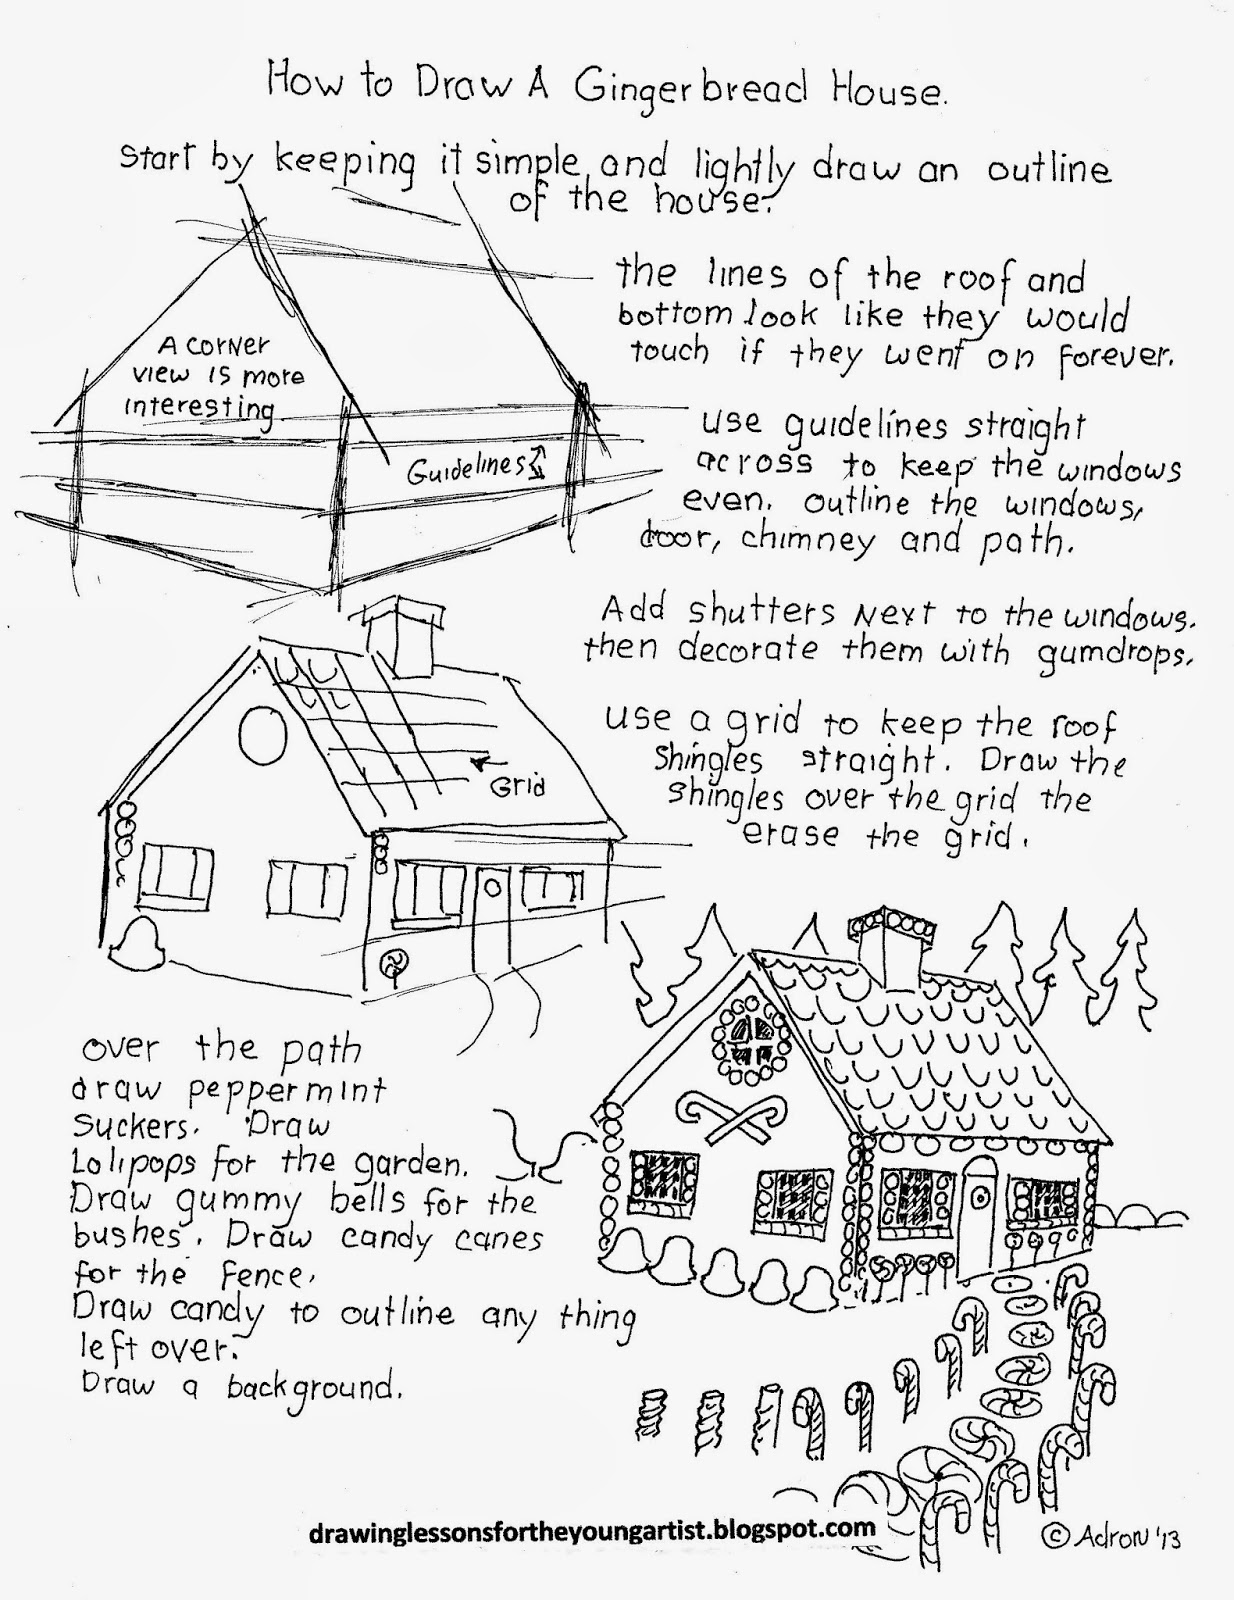 How to Draw A Gingerbread House.
Start by keeping it simple, and lightly draw an outline
of the house.
the lines of the roof and
bottom look like they would
touch if they went on forever.
A corner
view is more
interesting
Guidelines
use guidelines straight
across to keep the windows
even. outline the windows,
door, chimney and path.
Add shutters Next to the windows.
then decorate them with gumdrops.
use a grid to keep the roof
shingles straight. Draw the
shingles over the grid the
erase the grid.
Grid
over the path
draw peppermint
suckers. Draw
Lolipops for the garden.
Draw gummy bells for the
bushes. Draw candy canes
for the fence.
Draw candy to outline any thing
left over.
Draw a background.
drawinglessonsfortheyoungartist.blogspot.com
© Adron '13